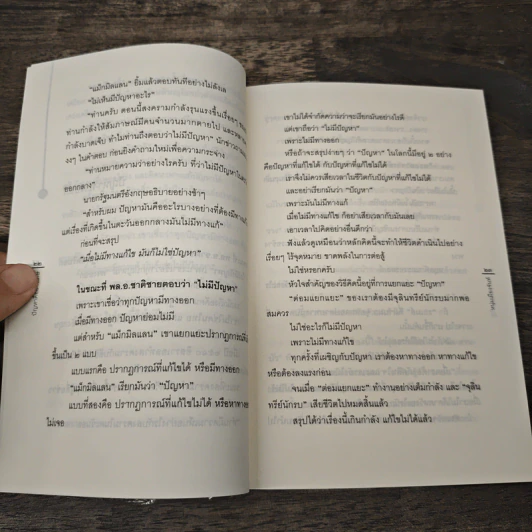 "แม็กมิลแลน" ยิ้มแล้วตอบทันทีอย่างไม่ลังเล
"ไม่เห็นมีปัญหาอะไร"
"ท่านครับ ตอนนี้สงครามกำลังรุนแรงขึ้นเรื่อยๆ
ท่านกำลังให้สัมภาษณ์มีคนจำนวนมากตายไป และ
กำลังบาดเจ็บ ทำไมท่านถึงตอบว่าไม่มีปัญหา" นักข่าว
งงๆ ในคำตอบ ก่อนยิงคำถามใหม่เพื่อความกระจ่าง
"ท่านหมายความว่าอย่างไรครับ ที่ว่าไม่มีปัญหาใน
ออกกลาง"
นายกรัฐมนตรีอังกฤษอธิบายอย่างช้าๆ
"สำหรับผม ปัญหามันคืออะไรบางอย่างที่ต้องมีทาง
แต่เรื่องที่เกิดขึ้นในตะวันออกกลางมันไม่มีทางแก้"
ก่อนที่จะสรุป
"เมื่อไม่มีทางแก้ไข มันก็ไม่ใช่ปัญหา"
ในขณะที่ พล.อ.ชาติชายตอบว่า "ไม่มีปัญหา"
เพราะเขาเชื่อว่าทุกปัญหามีทางออก
เมื่อมีทางออก ปัญหาย่อมไม่มี
แต่สำหรับ "แม็กมิลแลน" เขาแยกแยะปรากฏการณ์
ขึ้นเป็น ๒ แบบ
แบบแรกคือ ปรากฏการณ์ที่แก้ไขได้ หรือมีทางออก
"แม็กมิลแลน" เรียกมันว่า "ปัญหา"
แบบที่สองคือ ปรากฏการณ์ที่แก้ไขไม่ได้ หรือหาทาง
ไม่เจอ
เขาไม่ได้จำกัดความว่าจะเรียกมันอย่างไรดี
แต่เขาถือว่า "ไม่มีปัญหา"
เพราะไม่มีทางออก
หรือถ้าจะสรุปง่ายๆ ว่า "ปัญหา" ในโลกนี้มีอยู่ ๒ อย่าง
คือปัญหาที่แก้ไขได้ กับปัญหาที่แก้ไขไม่ได้
เราจึงไม่ควรเสียเวลาในชีวิตกับปัญหาที่แก้ไขไม่ได้
และอย่าเรียกมันว่า "ปัญหา"
เพราะมันไม่มีทางแก้
เมื่อไม่มีทางแก้ไข ก็อย่าเสียเวลากับมันเลย
เอาเวลาไปคิดอย่างอื่นดีกว่า
ฟังแล้วดูเหมือนว่าหลักคิดนี้จะทำให้ชีวิตดำเนินไปอย่าง
เรื่อยๆ ไร้จุดหมาย ขาดพลังในการต่อสู้
ไม่ใช่หรอกครับ
หัวใจสำคัญของวิธีคิดนี้อยู่ที่การแยกแยะ "ปัญหา"
"ต่อมแยกแยะ" ของเราต้องมีจุลินทรีย์นักรบมากพอ
สมควร
ไม่ใช่อะไรก็ไม่มีปัญหา
เพราะไม่มีทางแก้ไข
ทุกครั้งที่เผชิญกับปัญหา เราต้องหาทางออก หาทางแก้ไข
หรือต้องลงแรงก่อน
จนเมื่อ "ต่อมแยกแยะ" ทำงานอย่างเต็มกำลัง และ "จุลิน
ทรีย์นักรบ" เสียชีวิตไปหมดสิ้นแล้ว
สรุปได้ว่าเรื่องนี้เกินกำลัง แก้ไขไม่ได้แล้ว